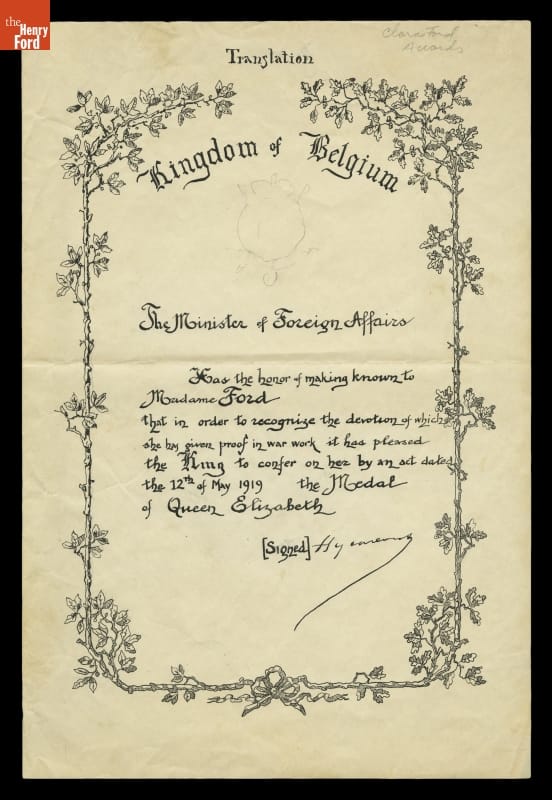 the
Henry
Ford
Clara Ford
Awards
Translation
Kingdom of Belgium
The Minister of Foreign Affairs
Has the honor of making known to
Madame Ford
that in order to recognize the devotion of which
she has given proof in war work it has pleased
the King to confer on her by an act dated
the 12th of May 1919 the Medal
of Queen Elizabeth
[Signed]